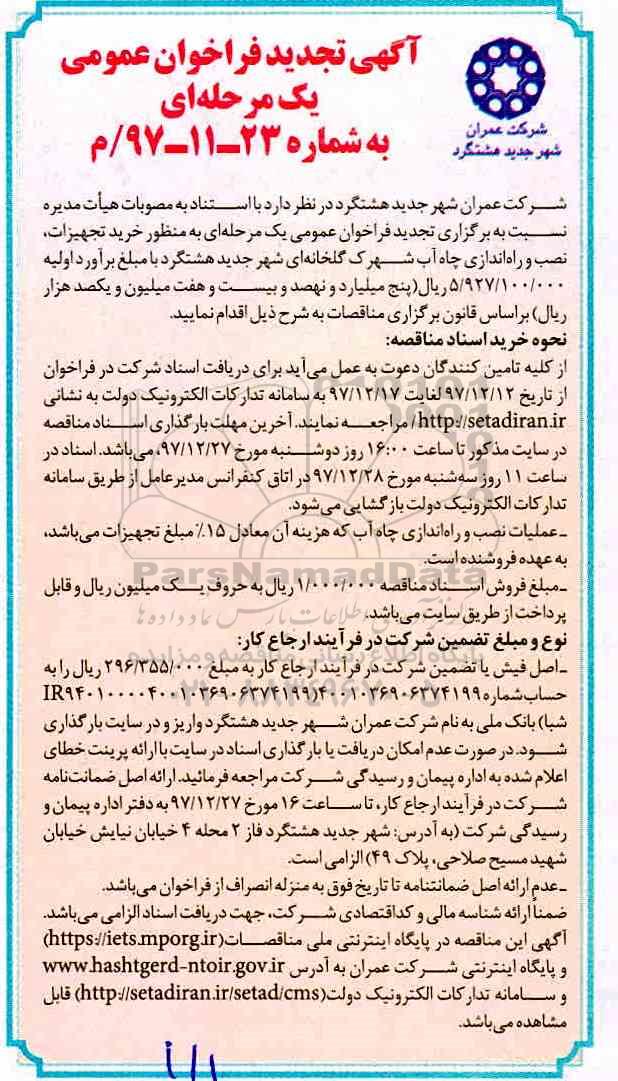 آگهی تجدید فراخوان عمومی
یک مرحله‌ای
به شماره ۲۳-۱۱-۹۷/م
شرکت عمران
شهر جدید هشتگرد
شرکت عمران شهر جدید هشتگرد در نظر دارد با استناد به مصوبات هیأت مدیره
نسبت به برگزاری تجدید فراخوان عمومی یک مرحله‌ای به منظور خرید تجهیزات،
نصب و راه‌اندازی چاه آب شهرک گلخانه‌ای شهر جدید هشتگرد با مبلغ برآورد اولیه
۵/۹۲۷/۱۰۰/۰۰۰ ریال(پنج میلیارد و نهصد و بیست و هفت میلیون و یکصد هزار
ریال) براساس قانون برگزاری مناقصات به شرح ذیل اقدام نمایید.
نحوه خرید اسناد مناقصه:
از کلیه تامین کنندگان دعوت به عمل می‌آید برای دریافت اسناد شرکت در فراخوان
از تاریخ ۹۷/۱۲/۱۲ لغایت ۹۷/۱۲/۱۷ به سامانه تدارکات الکترونیک دولت به نشانی
http://setadiran.ir/ مراجعه نمایند. آخرین مهلت بارگذاری اسناد مناقصه
در سایت مذکور تا ساعت ۱۶:۰۰ روز دوشنبه مورخ ۹۷/۱۲/۲۷، می‌باشد. اسناد در
ساعت ۱۱ روز سه‌شنبه مورخ ۹۷/۱۲/۲۸ در اتاق کنفرانس مدیرعامل از طریق سامانه
تدارکات الکترونیک دولت بازگشایی می‌شود.
ـ عملیات نصب و راه‌اندازی چاه آب که هزینه آن معادل ۱۵٪ مبلغ تجهیزات می‌باشد،
به عهده فروشنده است.
ParsNamadData
ـ مبلغ فروش اسناد مناقصه ۱/۰۰۰/۰۰۰ ریال به حروف یک میلیون ریال و قابل
پرداخت از طریق سایت می‌باشد.
نوع و مبلغ تضمین شرکت در فرآیند ارجاع کار:
ـ اصل فیش یا تضمین شرکت در فرآیند ارجاع کار به مبلغ ۲۹۶/۳۵۵/۰۰۰ ریال را به
حساب شماره ۴۰۰۱۰۳۶۹۰۶۳۷۴۱۹۹(IR۹۴۰۱۰۰۰۰۴۰۰۱۰۳۶۹۰۶۳۷۴۱۹۹
شبا) بانک ملی به نام شرکت عمران شهر جدید هشتگرد واریز و در سایت بارگذاری
شود. در صورت عدم امکان دریافت یا بارگذاری اسناد در سایت با ارائه پرینت خطای
اعلام شده به اداره پیمان و رسیدگی شرکت مراجعه فرمائید. ارائه اصل ضمانت‌نامه
شرکت در فرآیند ارجاع کار، تا ساعت ۱۶ مورخ ۹۷/۱۲/۲۷ به دفتر اداره پیمان و
رسیدگی شرکت (به آدرس: شهر جدید هشتگرد فاز ۲ محله ۴ خیابان نیایش خیابان
شهید مسیح صلاحی، پلاک ۴۹) الزامی است.
ـ عدم ارائه اصل ضمانتنامه تا تاریخ فوق به منزله انصراف از فراخوان می‌باشد.
ضمناً ارائه شناسه مالی و کداقتصادی شرکت، جهت دریافت اسناد الزامی می‌باشد.
آگهی این مناقصه در پایگاه اینترنتی ملی مناقصات(https://iets.mporg.ir)
و پایگاه اینترنتی شرکت عمران به آدرس www.hashtgerd-ntoir.gov.ir
و سامانه تدارکات الکترونیک دولت(http://setadiran.ir/setad/cms) قابل
مشاهده می‌باشد.